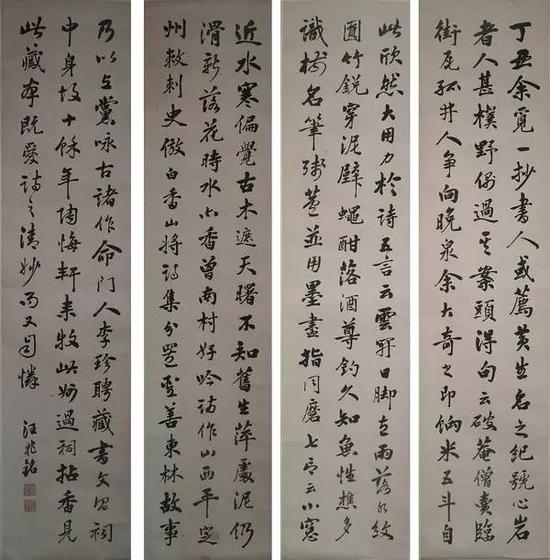 丁丑余覓一抄書人或薦黃生名之紀號心岩
者人甚樸野偶過其案頭得句云破庵僧賣臨
街瓦孤井人爭向晚泉余大奇之即餉米五斗自
此欣然大用力於詩五言云雲開日腳直雨落水紋
圓竹銳穿泥壁蠅酣落酒尊釣久知魚性樵多
識樹名筆殘蘆並用墨盡指同磨七言云小窗
近水寒偏覺古木遮天曙不知舊生萍處泥仍
滑新落花時水亦香曾南村好吟詩作山西平定
州刺史倣白香山將詩集分置聖善東林故事
乃以上黨咏古諸作命門人李珍聘藏書文昌祠
中身故十餘年陶悔軒來牧此州過祠拈香見
此藏本既愛詩之清妙而又自憐
汪兆銘